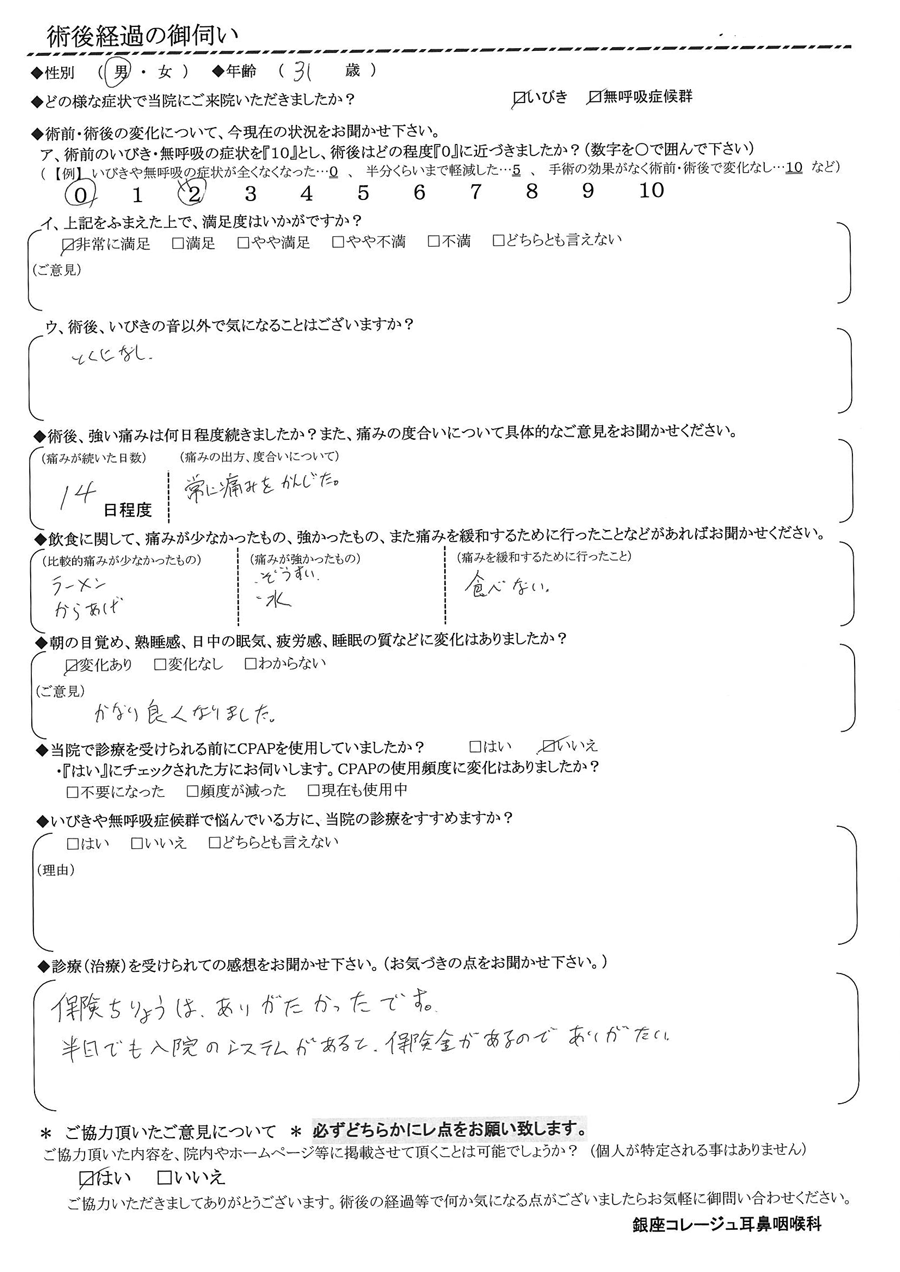 術後経過の御伺い
◆性別 ( 男 ・ 女 ) ◆年齢 ( 31 歳 )
◆どの様な症状で当院にご来院いただきましたか? ☑いびき ☑無呼吸症候群
◆術前・術後の変化について、今現在の状況をお聞かせ下さい。
ア、術前のいびき・無呼吸の症状を『10』とし、術後はどの程度『0』に近づきましたか?(数字を○で囲んで下さい)
(【例】いびきや無呼吸の症状が全くなくなった…0 、 半分くらいまで軽減した…5 、 手術の効果がなく術前・術後で変化なし…10 など)
0 1 2 3 4 5 6 7 8 9 10
イ、上記をふまえた上で、満足度はいかがですか?
☑非常に満足 □満足 □やや満足 □やや不満 □不満 □どちらとも言えない
(ご意見)
ウ、術後、いびきの音以外で気になることはございますか?
とくになし.
◆術後、強い痛みは何日程度続きましたか?また、痛みの度合いについて具体的なご意見をお聞かせください。
(痛みが続いた日数) (痛みの出方、度合いについて)
14 日程度 常に痛みをかんじた。
◆飲食に関して、痛みが少なかったもの、強かったもの、また痛みを緩和するために行ったことなどがあればお聞かせください。
(比較的痛みが少なかったもの) (痛みが強かったもの) (痛みを緩和するために行ったこと)
ラーメン ・ぞうすい. 食べない.
からあげ ・水
◆朝の目覚め、熟睡感、日中の眠気、疲労感、睡眠の質などに変化はありましたか?
☑変化あり □変化なし □わからない
(ご意見)
かなり良くなりました。
◆当院で診療を受けられる前にCPAPを使用していましたか? □はい ☑いいえ
・『はい』にチェックされた方にお伺いします。CPAPの使用頻度に変化はありましたか?
□不要になった □頻度が減った □現在も使用中
◆いびきや無呼吸症候群で悩んでいる方に、当院の診療をすすめますか?
□はい □いいえ □どちらとも言えない
(理由)
◆診療(治療)を受けられての感想をお聞かせ下さい。(お気づきの点をお聞かせ下さい。)
保険ちりょうは、ありがたかったです。
半日でも入院のシステムがあると、保険金があるのでありがたい.
＊ ご協力頂いたご意見について ＊ 必ずどちらかにレ点をお願い致します。
ご協力頂いた内容を、院内やホームページ等に掲載させて頂くことは可能でしょうか? (個人が特定される事はありません)
☑はい □いいえ
ご協力いただきましてありがとうございます。術後の経過等で何か気になる点がございましたらお気軽に御問い合わせください。
銀座コレージュ耳鼻咽喉科